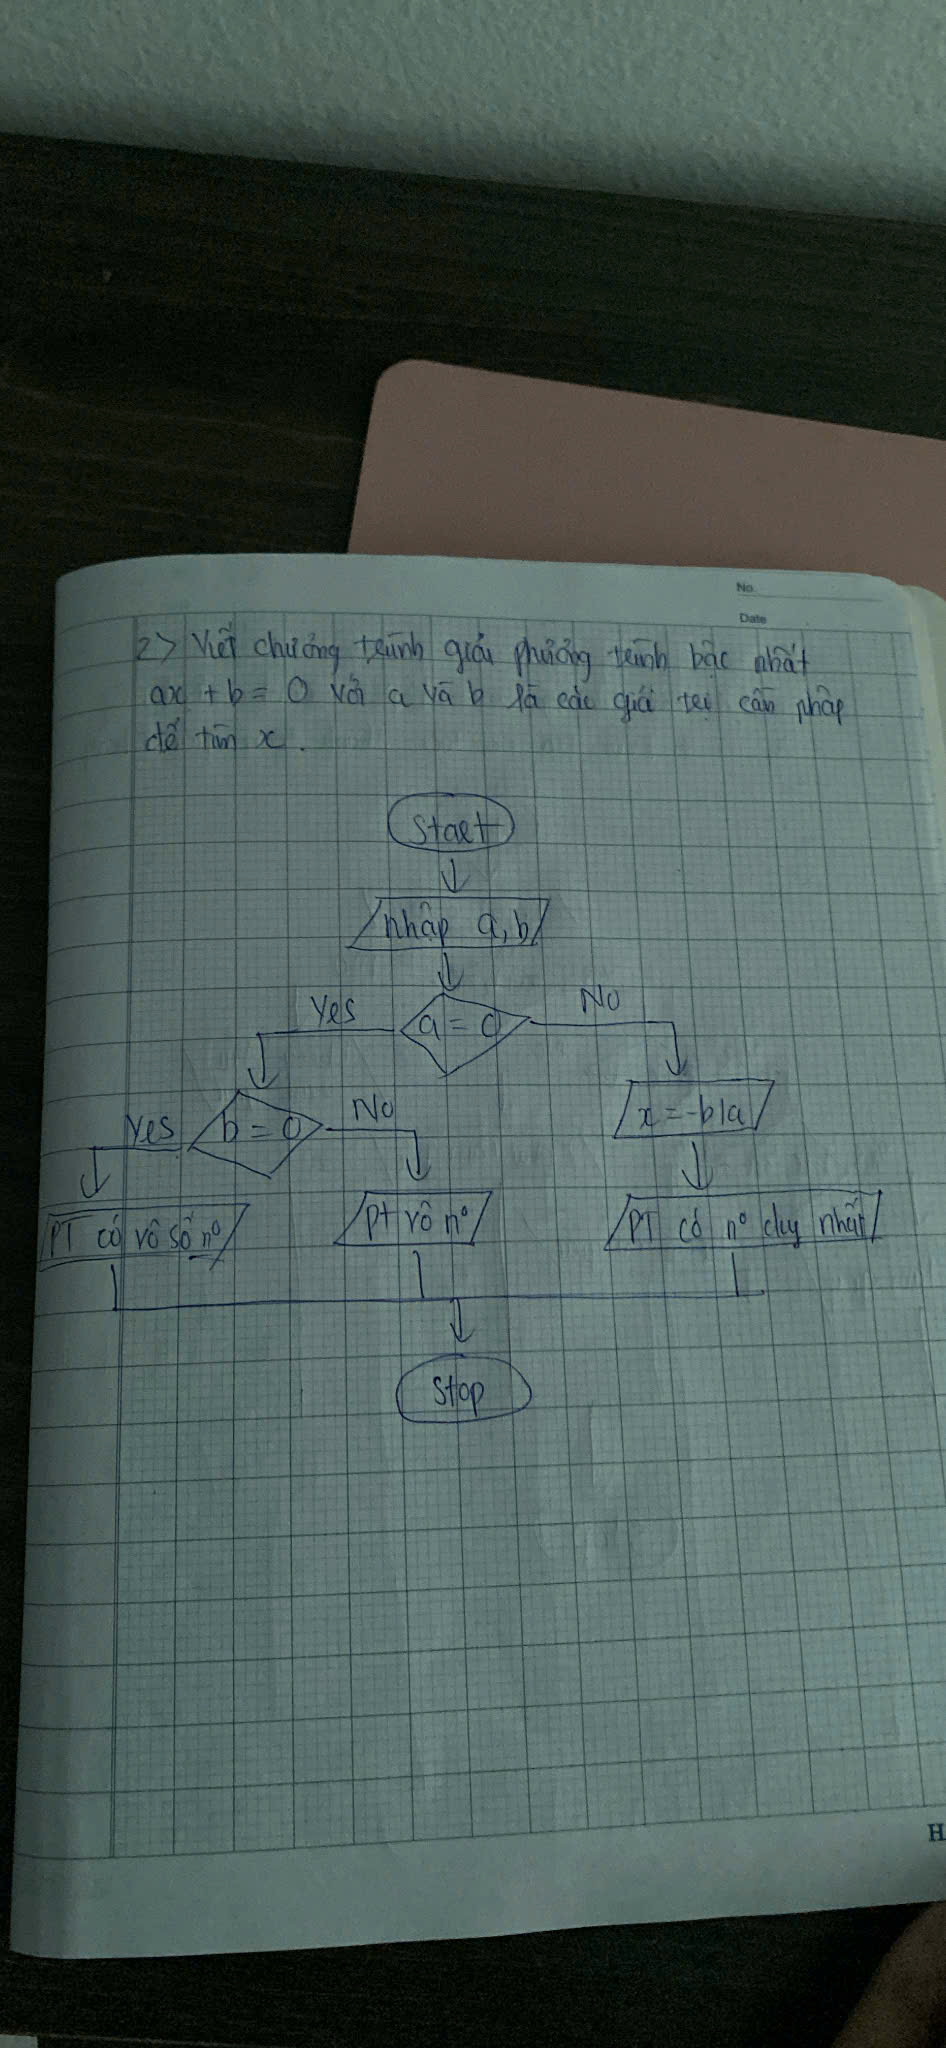 No.
Date
2> Viết chương trình giải phương trình bậc nhất
ax + b = 0 với a và b là các giá trị cần nhập
để tìm x.
Start
nhập a, b
Yes
a = 0
No
Yes
b = 0
No
x = -b/a
PT có vô số n°
pt vô n°
PT có n° duy nhất
Stop
H